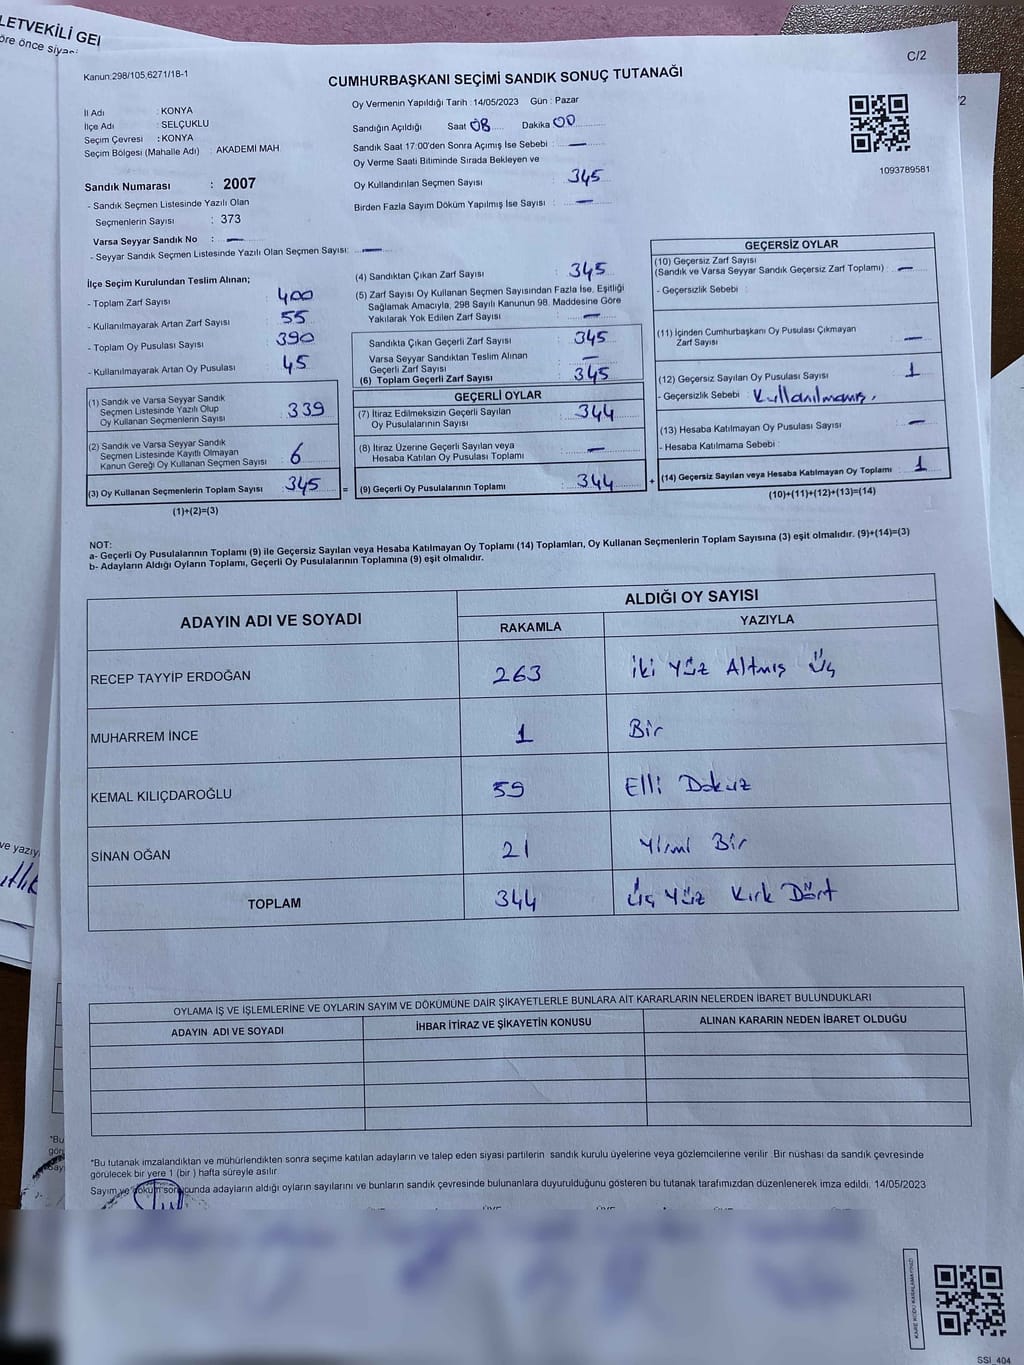 LETVEKİLİ GEI
öre önce siyasi
Kanun:298/105,6271/18-1
C/2
CUMHURBAŞKANI SEÇİMİ SANDIK SONUÇ TUTANAĞI
İl Adı : KONYA
İlçe Adı : SELÇUKLU
Seçim Çevresi : KONYA
Seçim Bölgesi (Mahalle Adı) : AKADEMİ MAH
Sandık Numarası : 2007
- Sandık Seçmen Listesinde Yazılı Olan
Seçmenlerin Sayısı : 373
Varsa Seyyar Sandık No : —
- Seyyar Sandık Seçmen Listesinde Yazılı Olan Seçmen Sayısı: —
Oy Vermenin Yapıldığı Tarih : 14/05/2023 Gün : Pazar
Sandığın Açıldığı Saat 08 Dakika 00
Sandık Saat 17:00'den Sonra Açımış İse Sebebi : —
Oy Verme Saati Bitiminde Sırada Bekleyen ve
Oy Kullandırılan Seçmen Sayısı : 345
Birden Fazla Sayım Döküm Yapılmış İse Sayısı : —
1093789581
/2
İlçe Seçim Kurulundan Teslim Alınan;
- Toplam Zarf Sayısı : 400
- Kullanılmayarak Artan Zarf Sayısı : 55
- Toplam Oy Pusulası Sayısı : 390
- Kullanılmayarak Artan Oy Pusulası : 45
(1) Sandık ve Varsa Seyyar Sandık
Seçmen Listesinde Yazılı Olup
Oy Kullanan Seçmenlerin Sayısı : 339
(2) Sandık ve Varsa Seyyar Sandık
Seçmen Listesinde Kayıtlı Olmayan
Kanun Gereği Oy Kullanan Seçmen Sayısı : 6
(3) Oy Kullanan Seçmenlerin Toplam Sayısı : 345 =
(1)+(2)=(3)
(4) Sandıktan Çıkan Zarf Sayısı : 345
(5) Zarf Sayısı Oy Kullanan Seçmen Sayısından Fazla İse, Eşitliği
Sağlamak Amacıyla, 298 Sayılı Kanunun 98. Maddesine Göre
Yakılarak Yok Edilen Zarf Sayısı : —
Sandıkta Çıkan Geçerli Zarf Sayısı : 345
Varsa Seyyar Sandıktan Teslim Alınan
Geçerli Zarf Sayısı : —
(6) Toplam Geçerli Zarf Sayısı : 345
GEÇERLİ OYLAR
(7) İtiraz Edilmeksizin Geçerli Sayılan
Oy Pusulalarının Sayısı : 344
(8) İtiraz Üzerine Geçerli Sayılan veya
Hesaba Katılan Oy Pusulası Toplamı : —
(9) Geçerli Oy Pusulalarının Toplamı : 344 +
GEÇERSİZ OYLAR
(10) Geçersiz Zarf Sayısı
(Sandık ve Varsa Seyyar Sandık Geçersiz Zarf Toplamı) : —
- Geçersizlik Sebebi :
(11) İçinden Cumhurbaşkanı Oy Pusulası Çıkmayan
Zarf Sayısı : —
(12) Geçersiz Sayılan Oy Pusulası Sayısı : 1
- Geçersizlik Sebebi : Kullanılmamış.
(13) Hesaba Katılmayan Oy Pusulası Sayısı : —
- Hesaba Katılmama Sebebi :
(14) Geçersiz Sayılan veya Hesaba Katılmayan Oy Toplamı : 1
(10)+(11)+(12)+(13)=(14)
NOT:
a- Geçerli Oy Pusulalarının Toplamı (9) ile Geçersiz Sayılan veya Hesaba Katılmayan Oy Toplamı (14) Toplamları, Oy Kullanan Seçmenlerin Toplam Sayısına (3) eşit olmalıdır. (9)+(14)=(3)
b- Adayların Aldığı Oyların Toplamı, Geçerli Oy Pusulalarının Toplamına (9) eşit olmalıdır.
ADAYIN ADI VE SOYADI ALDIĞI OY SAYISI
RAKAMLA YAZIYLA
RECEP TAYYİP ERDOĞAN 263 iki Yüz Altmış Üç
MUHARREM İNCE 1 Bir
KEMAL KILIÇDAROĞLU 59 Elli Dokuz
SİNAN OĞAN 21 Yirmi Bir
TOPLAM 344 Üç Yüz Kırk Dört
ve yazıyl
OYLAMA İŞ VE İŞLEMLERİNE VE OYLARIN SAYIM VE DÖKÜMÜNE DAİR ŞİKAYETLERLE BUNLARA AİT KARARLARIN NELERDEN İBARET BULUNDUKLARI
ADAYIN ADI VE SOYADI İHBAR İTİRAZ VE ŞİKAYETİN KONUSU ALINAN KARARIN NEDEN İBARET OLDUĞU
*Bu
gör
Say
*Bu tutanak imzalandıktan ve mühürlendikten sonra seçime katılan adayların ve talep eden siyasi partilerin sandık kurulu üyelerine veya gözlemcilerine verilir .Bir nüshası da sandık çevresinde
görülecek bir yere 1 (bir ) hafta süreyle asılır
Sayım ve döküm sonucunda adayların aldığı oyların sayılarını ve bunların sandık çevresinde bulunanlara duyurulduğunu gösteren bu tutanak tarafımızdan düzenlenerek imza edildi. 14/05/2023
SSI_404